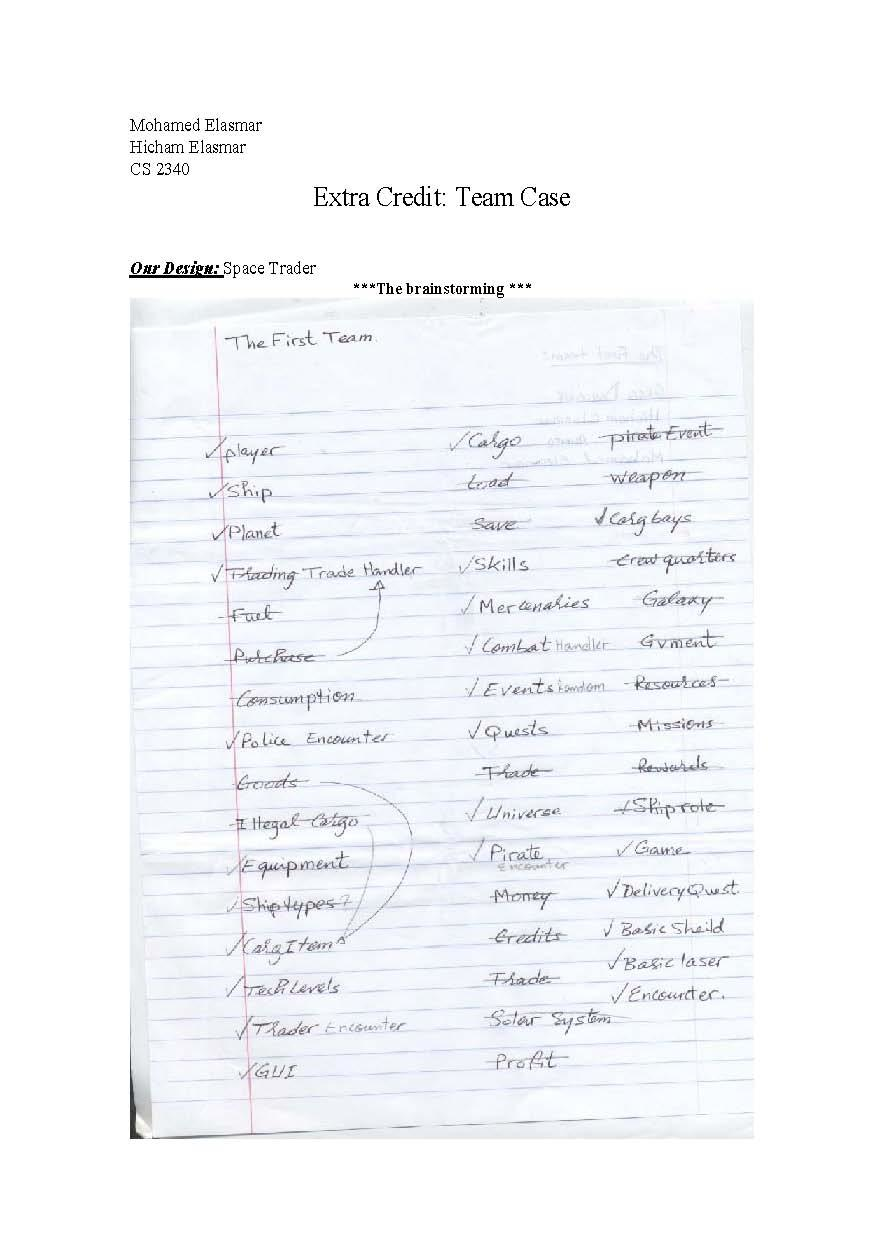 Mohamed Elasmar
Hicham Elasmar
CS 2340
Extra Credit: Team Case
Our Design: Space Trader
***The brainstorming ***
The First Team.
✓player
✓Ship
✓Planet
✓Trading Trade Handler
Fuel
Purchase
Consumption
✓Police Encounter
Goods
Illegal Cargo
✓Equipment
✓Shiptypes?
✓CargItem
✓Tech Levels
✓Trader Encounter
✓GUI
✓Cargo
Load
Save
✓Skills
✓Mercenaries
✓Combat Handler
✓Events Random
✓Quests
Trade
✓Universe
✓Pirate
Encounter
Money
Credits
Trade
Solar System
Profit
pirate Event
Weapon
✓Cargbays
Crew quarters
Galaxy
Gvment
Resources
Missions
Rewards
✓Shiprote
✓Game
✓DeliveryQuest
✓Basic Sheild
✓Basic laser
✓Encounter.